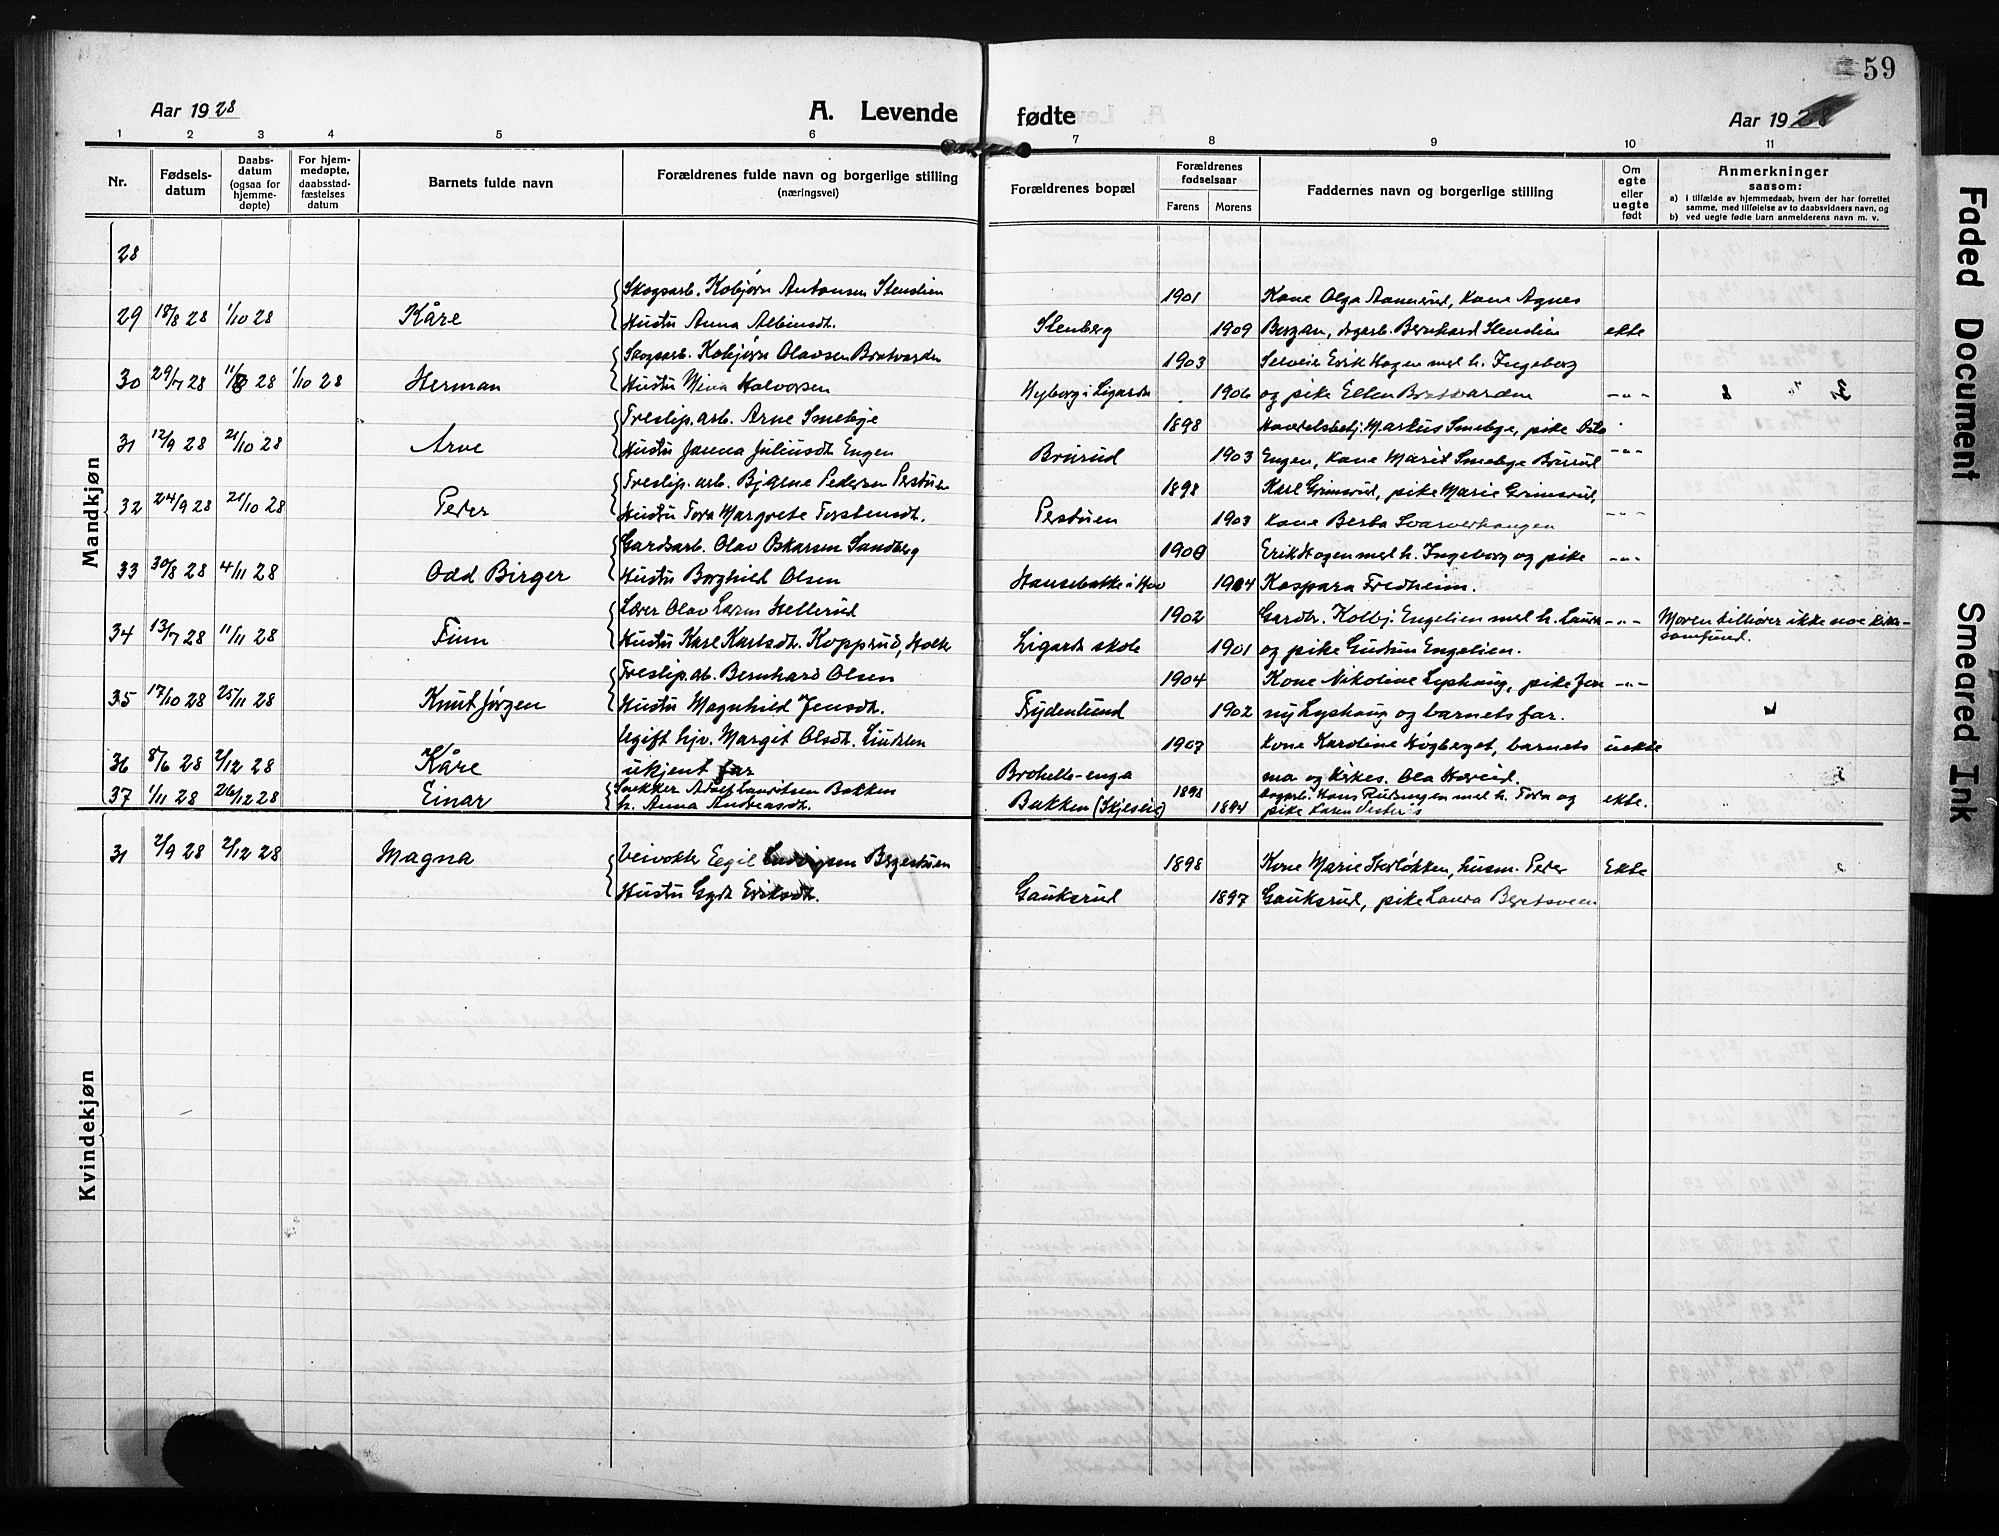 59
Aar 1928
A. Levende fødte
Aar 1928
1 2 3 4 5 6 7 8 9 10 11
Nr.
Fødsels-datum
Daabs-datum (ogsaa for hjemme-døpte)
For hjem-medøpte, daabsstad-fæstelses datum
Barnets fulde navn
Forældrenes fulde navn og borgerlige stilling (næringsvei)
Forældrenes bopæl
Forældrenes fødselsaar
Farens Morens
Faddernes navn og borgerlige stilling
Om egte eller uegte født
Anmerkninger
saasom:
a) i tilfælde av hjemmedaab, hvem der har forrettet samme, med tilføielse av to daabsvidners navn, og
b) ved uegte fødte barn anmelderens navn m. v.
Mandkjøn
28
Skogsarb. Kobjørn Antonsen Stendien 1901 Kone Olga Aannerud, Kone Agnes
29 18/8 28 1/10 28 Kåre Hustru Anna Albinsdt. Stenberg 1909 Bergan, Bernhard Stendien ekte
Skogsarb. Kobjørn Olavsen Bratvarden 1903 Erik Hogen med h. Ingeborg
30 29/7 28 11/8 28 1/10 28 Herman Hustru Mina Halvorsen Nyborg i Ligarda 1906 og pike Ellen Bratvarden -"-
Treslip.arb. Arne Smebye 1898 Markus Smebye, pike Åsta
31 12/9 28 21/10 28 Arve Hustru Janna Juliusdt. Engen Brurud 1903 Engen, Kone Marit Smebye Brurud -"-
Treslip.arb. Bjarne Pedersen Perstuen 1898 Karl Grimsrud, pike Marie Grimsrud,
32 24/9 28 21/10 28 Peder Hustru Tora Margrete Torstensdt. Perstuen 1903 Kone Berta Svarverhaugen -"-
Gardsarb. Olav Oskarsen Sandberg 1900 Erik Hogen med h. Ingeborg og pike -"-
33 30/8 28 4/11 28 Odd Birger Hustru Borghild Olsen Hansebakke i Hov 1904 Kaspara Fredheim.
Lærer Olav Larsen Hellerud 1902 Gardbr. Kolbj. Engelien med h. Laura -"- Moren tilhører ikke noe kirke-
34 13/7 28 11/11 28 Finn Hustru Kari Karlsdt. Kopprud, Ligarda skole 1901 og pike Gudrun Engelien. samfund.
Treslip.ab. Bernhard Olsen 1904 Kone Nikoline Lyshaug, pike Jen -"-
35 17/10 28 25/11 28 Knut Jørgen Hustru Magnhild Jensdt. Frydenlund 1902 ny Lyshaug og barnets far.
Ugift hjv. Margit Olsdt. Liudslen 1907 Kone Karoline Høgberget, barnets uekte
36 8/6 28 2/12 28 Kåre ukjent far Brohells-enga ma og kirkes. Ola Hæreid.
37 1/11 28 26/12 28 Einar Snekker Adolf Lauritsen Bakken 1898 Hans Rudningen med h. Tora og ekte.
h. Anna Andreasdt. Bakken (Skjelsei) 1894 pike Karen
Kvindekjøn
31 2/9 28 2/12 28 Magna Veivokter Egil Ludvigsen Bergestuen 1898 Kone Marie Sterløkken, husm. Peder Ekte
Hustru Gyda Eriksdt. Gauksrud 1897 Gauksrud, pike Laura Beretsveen
Faded Document
Smeared Ink